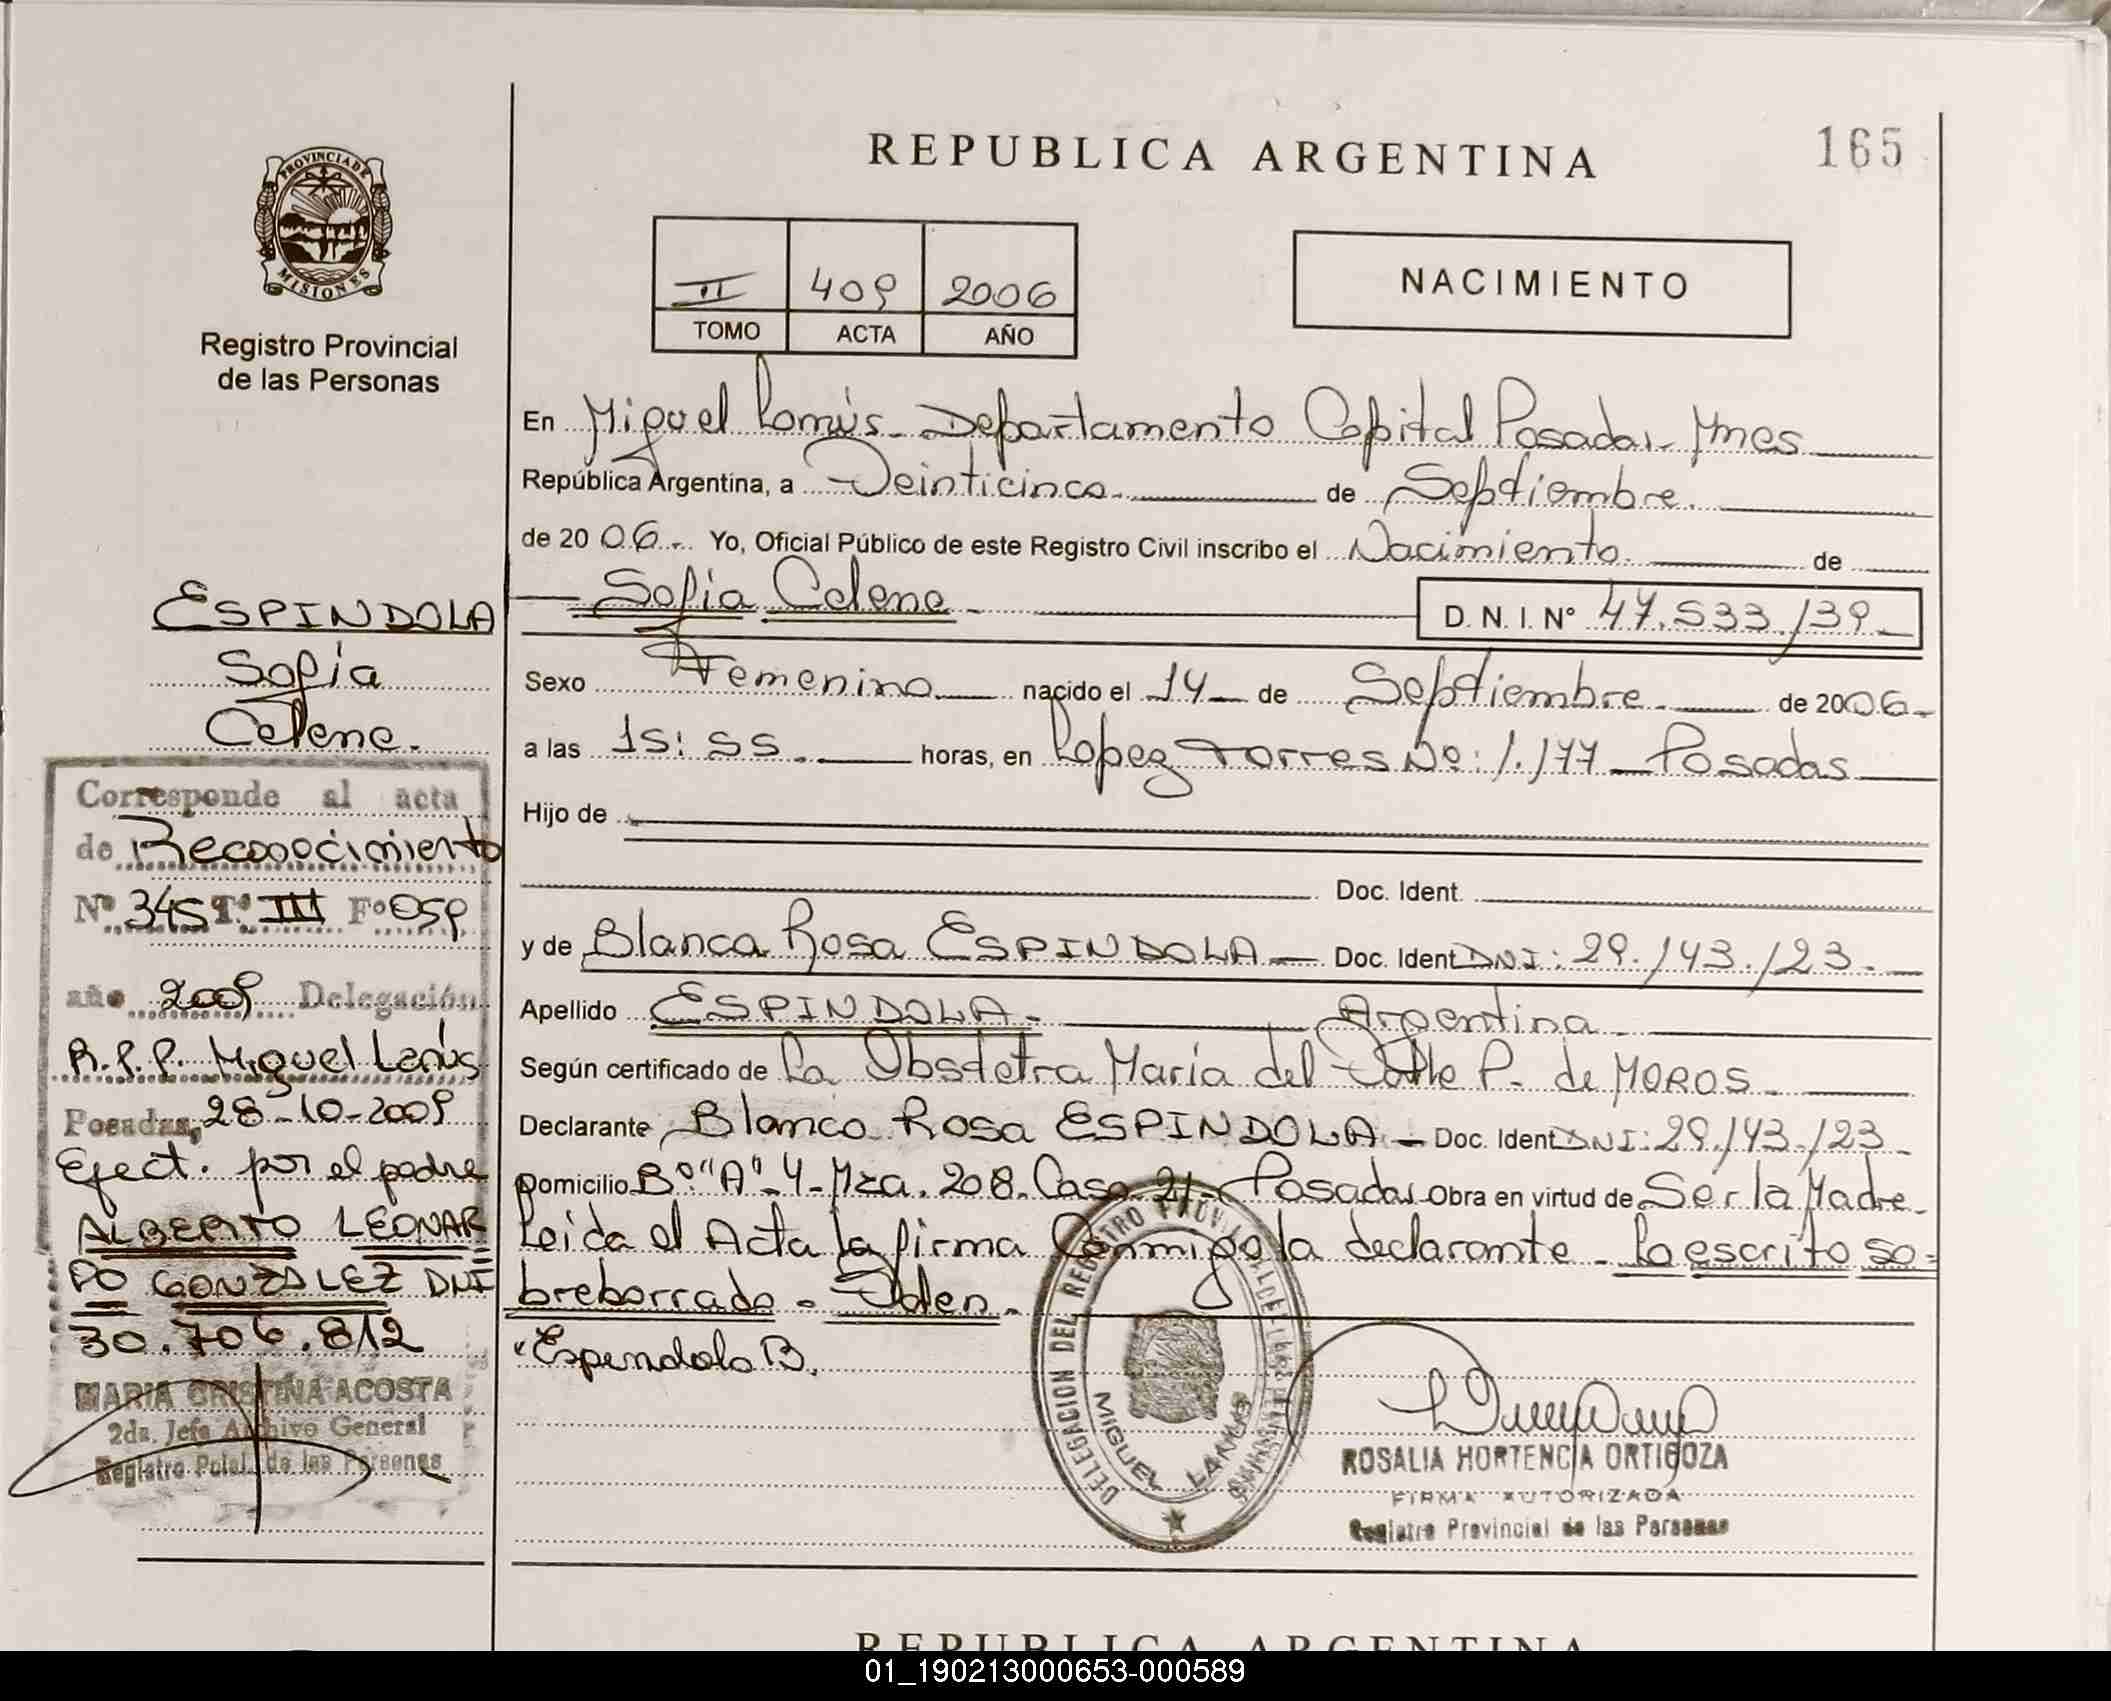 REPUBLICA ARGENTINA
165
PROVINCIA DE
MISIONES
Registro Provincial
de las Personas
II 409 2006
TOMO ACTA AÑO
NACIMIENTO
En Miguel Lanús - Departamento Capital Posadas - Mnes
República Argentina, a Veinticinco. de Septiembre.
de 2006.- Yo, Oficial Público de este Registro Civil inscribo el Nacimiento. de
Sofia Celene. D. N. I. Nº 47.533.139
Sexo Femenino nacido el 14 de Septiembre. de 2006.-
a las 15:55. horas, en Lopez Torres No: 1.177 Posadas
Hijo de
Doc. Ident.
y de Blanca Rosa ESPINDOLA Doc. Ident DNI: 29.143.123.
Apellido ESPINDOLA. Argentina
Según certificado de La Obstetra María del Valle P. de MOROS.
Declarante Blanca Rosa ESPINDOLA Doc. Ident DNI: 29.143.123
Domicilio Bº "A"-4-Mza. 208. Casa 21- Posadas Obra en virtud de Ser la Madre.
Leida el Acta la firma Conmigo la declarante - Lo escrito so=
breborrado. Valen.
Espindola B.
DELEGACION DEL REGISTRO PROVINCIAL DE LAS PERSONAS
MIGUEL LANUS
ROSALIA HORTENCIA ORTIGOZA
FIRMA AUTORIZADA
Registro Provincial de las Personas
ESPINDOLA
Sofia
Celene.
Corresponde al acta
de Reconocimiento
Nº 345 Tº III Fº 059
año 2009 Delegación
R.P.P. Miguel Lanús
Posadas, 28-10-2009
Efect. por el padre
ALBERTO LEONAR
DO GONZALEZ DNI
30.706.812
MARIA CRISTINA ACOSTA
2da. Jefe Archivo General
Registro Pcial. de las Personas
REPUBLICA ARGENTINA
01_190213000653-000589